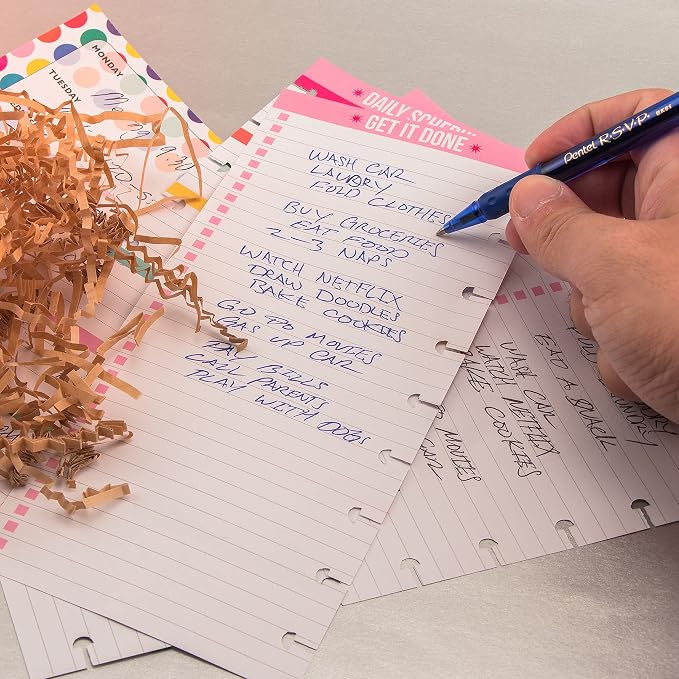 MONDAY
TUESDAY
DAILY
GET IT DONE
WASH CAR
LAUNDRY
FOLD CLOTHES
BUY GROCERIES
EAT FOOD
2-3 NAPS
WATCH NETFLIX
DRAW DOODLES
BAKE COOKIES
GO TO MOVIES
GAS UP CAR
PAY BILLS
CALL PARENTS
PLAY WITH DOGS
Pentel R.S.V.P.
EAT A SNACK
WASH CAR
WATCH NETFLIX
COOKIES
MOVIES
CAR